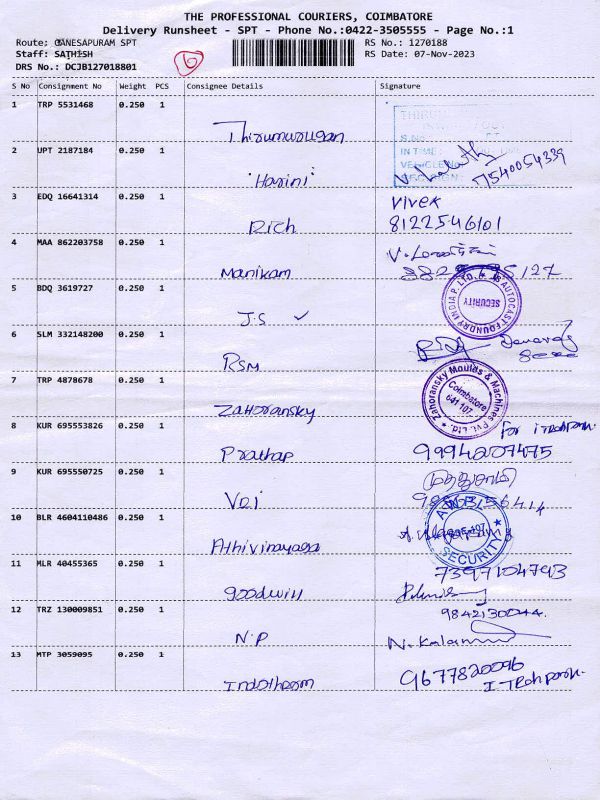 THE PROFESSIONAL COURIERS, COIMBATORE
Delivery Runsheet - SPT - Phone No.:0422-3505555 - Page No.:1
Route; GANESAPURAM SPT
RS No.: 1270188
Staff: SATHISH
RS Date: 07-Nov-2023
DRS No.: DCJB127018801
6
S No Consignment No Weight PCS Consignee Details Signature
1 TRP 5531468 0.250 1
Thirumurugan
2 UPT 2187184 0.250 1
7540054339
'Harini'
3 EDQ 16641314 0.250 1 Vivek
Rich 8122546101
4 MAA 862203758 0.250 1
Manikam
5 BDQ 3619727 0.250 1
J.S ✓
AUTOCAST FOUNDRY INDIA P. LTD.
SECURITY
6 SLM 332148200 0.250 1
RSM
7 TRP 4878678 0.250 1
Zahoransky
Zahoransky Moulds & Machines Pvt. Ltd.
Coimbatore
641 107.
8 KUR 695553826 0.250 1
for
Prathap 9994207475
9 KUR 695550725 0.250 1
10 BLR 4604110486 0.250 1
SECURITY
Athivinayaga
11 MLR 40455365 0.250 1 7397104793
goodwill
12 TRZ 130009851 0.250 1
N.P N. Kalamani
13 MTP 3059095 0.250 1 9677820096
Indotherm